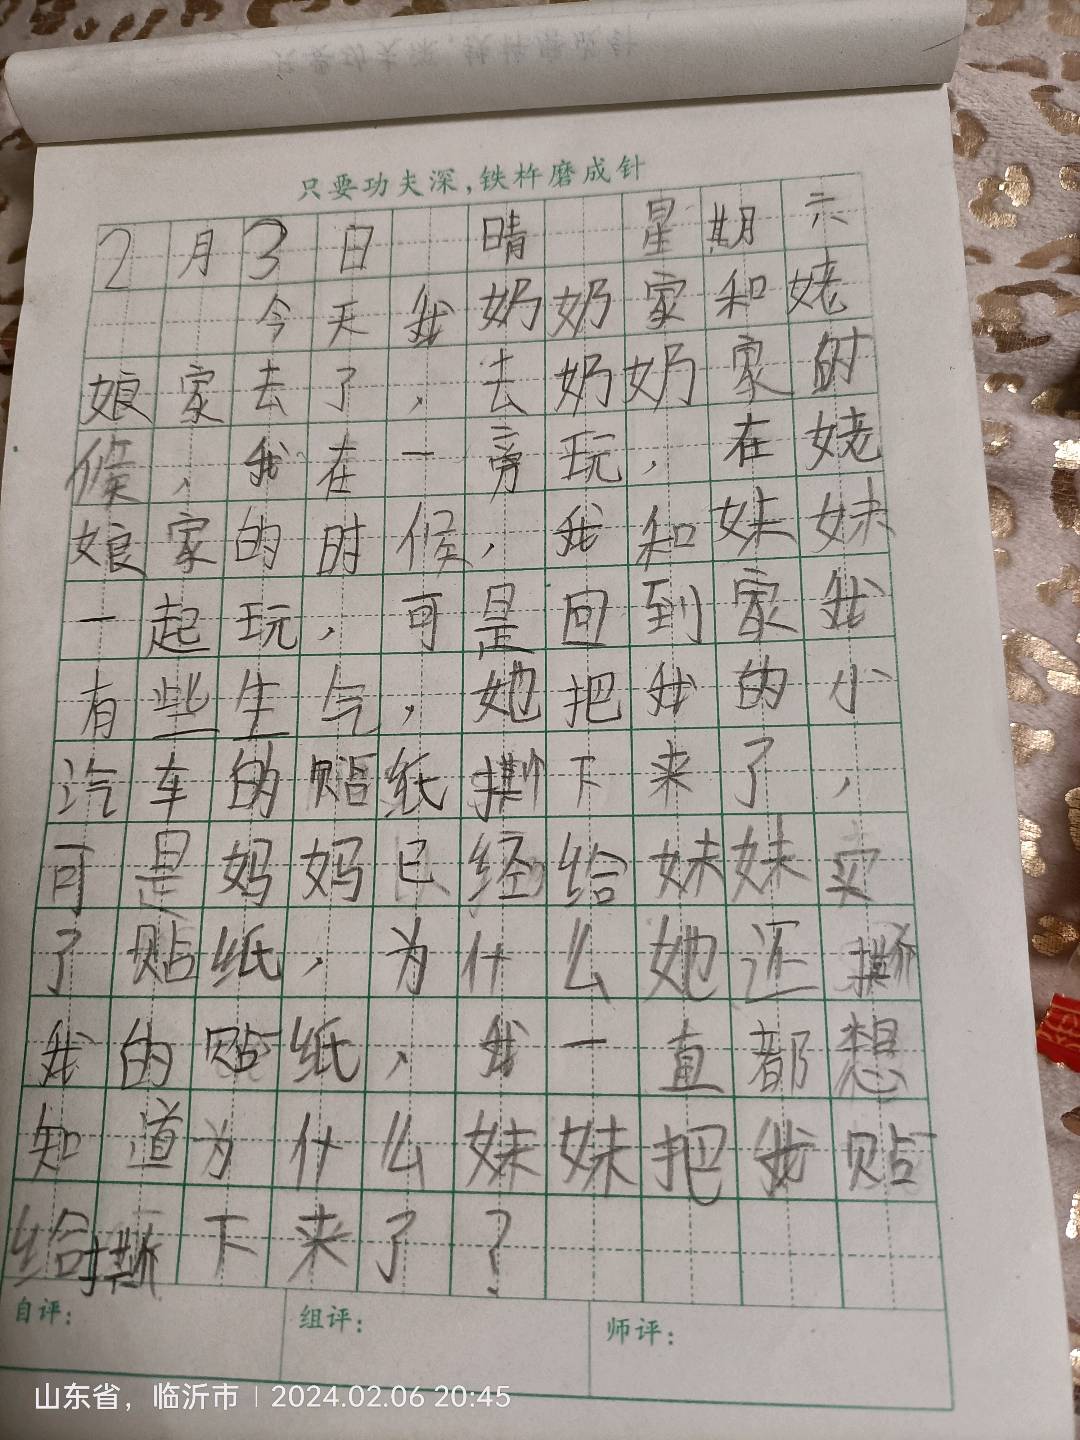 只要功夫深,铁杵磨成针
2月3日 晴 星期六
今天我奶奶家和姥
娘家去了，去奶奶家的时
候，我在一旁玩，在姥
娘家的时候，我和妹妹
一起玩，可是回到家我
有些生气，她把我的小
汽车的贴纸撕下来了，
可是妈妈已经给妹妹卖
了贴纸，为什么她还撕
我的贴纸，我一直都想
知道为什么妹妹把我贴
给撕下来了？
自评: 组评: 师评:
山东省，临沂市 | 2024.02.06 20:45